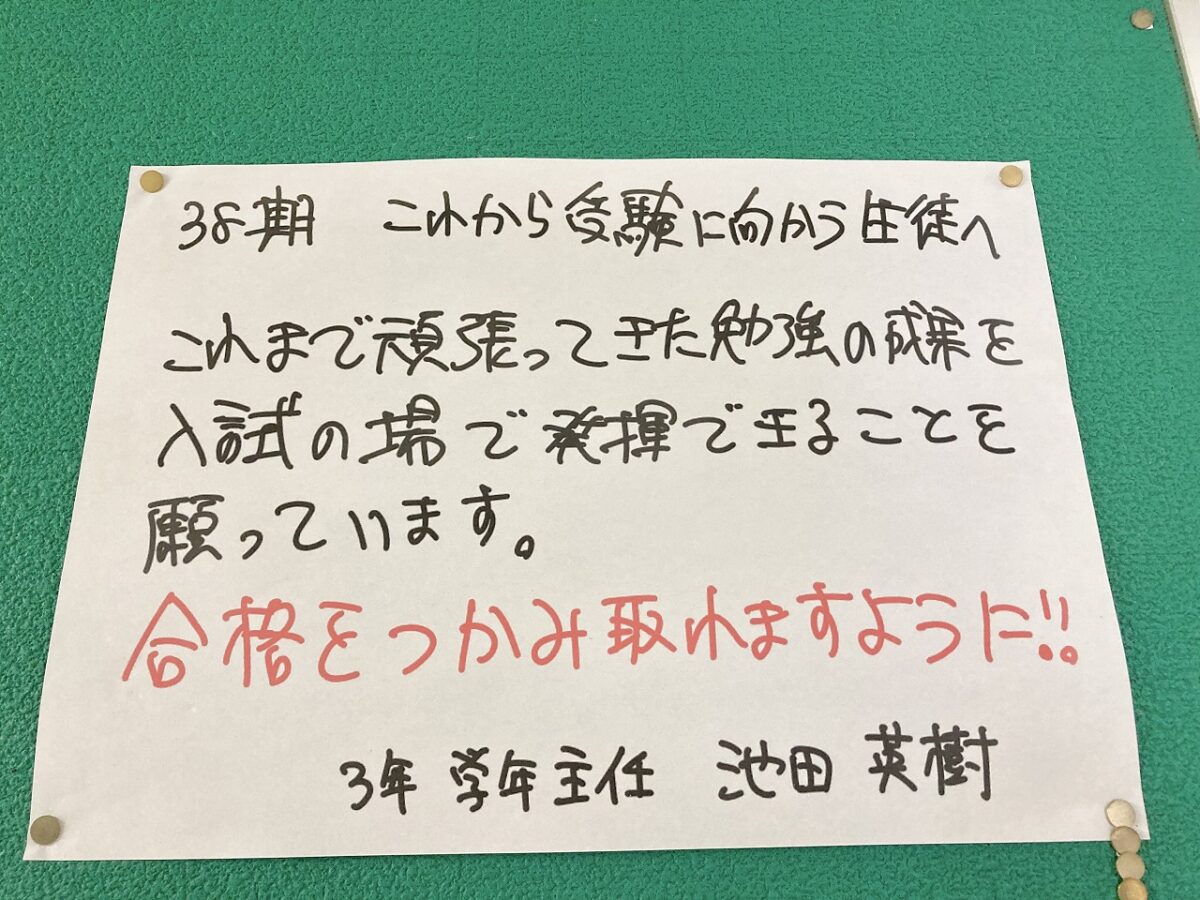 38期 これから受験に向かう生徒へ
これまで頑張ってきた勉強の成果を
入試の場で発揮できることを
願っています。
合格をつかみ取れますように!!
3年 学年主任 池田 英樹